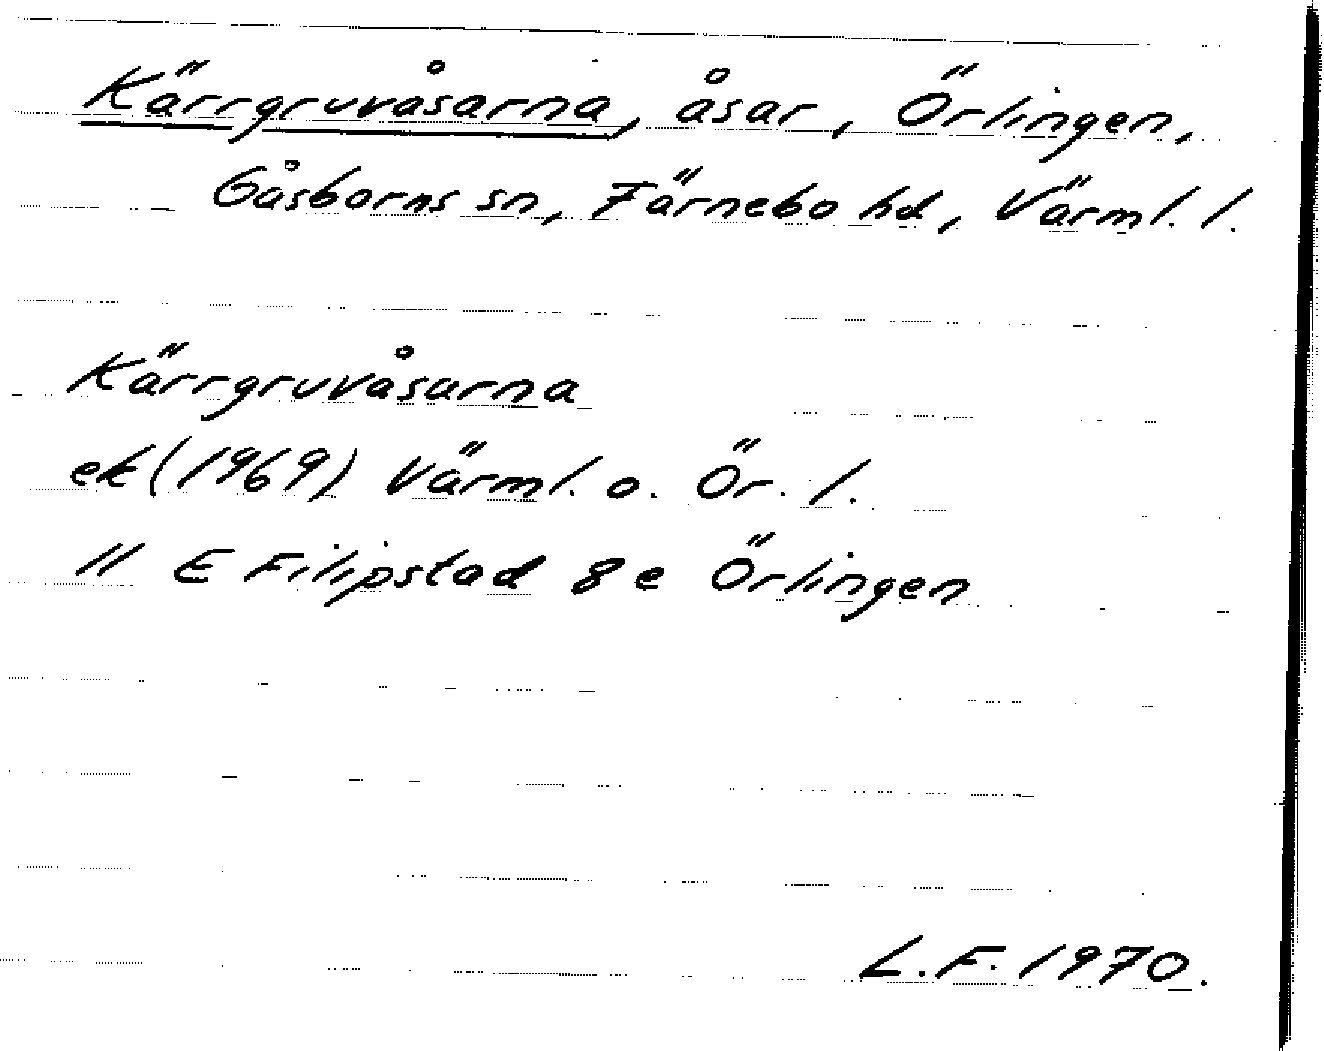 Kärrgruvåsarna, åsar, Örlingen,
Gåsborns sn, Färnebo hd, Värml. l.
Kärrgruvåsarna
ek (1969) Värml. o. Ör. l.
11 E Filipstad 8 e Örlingen
L.F. 1970.